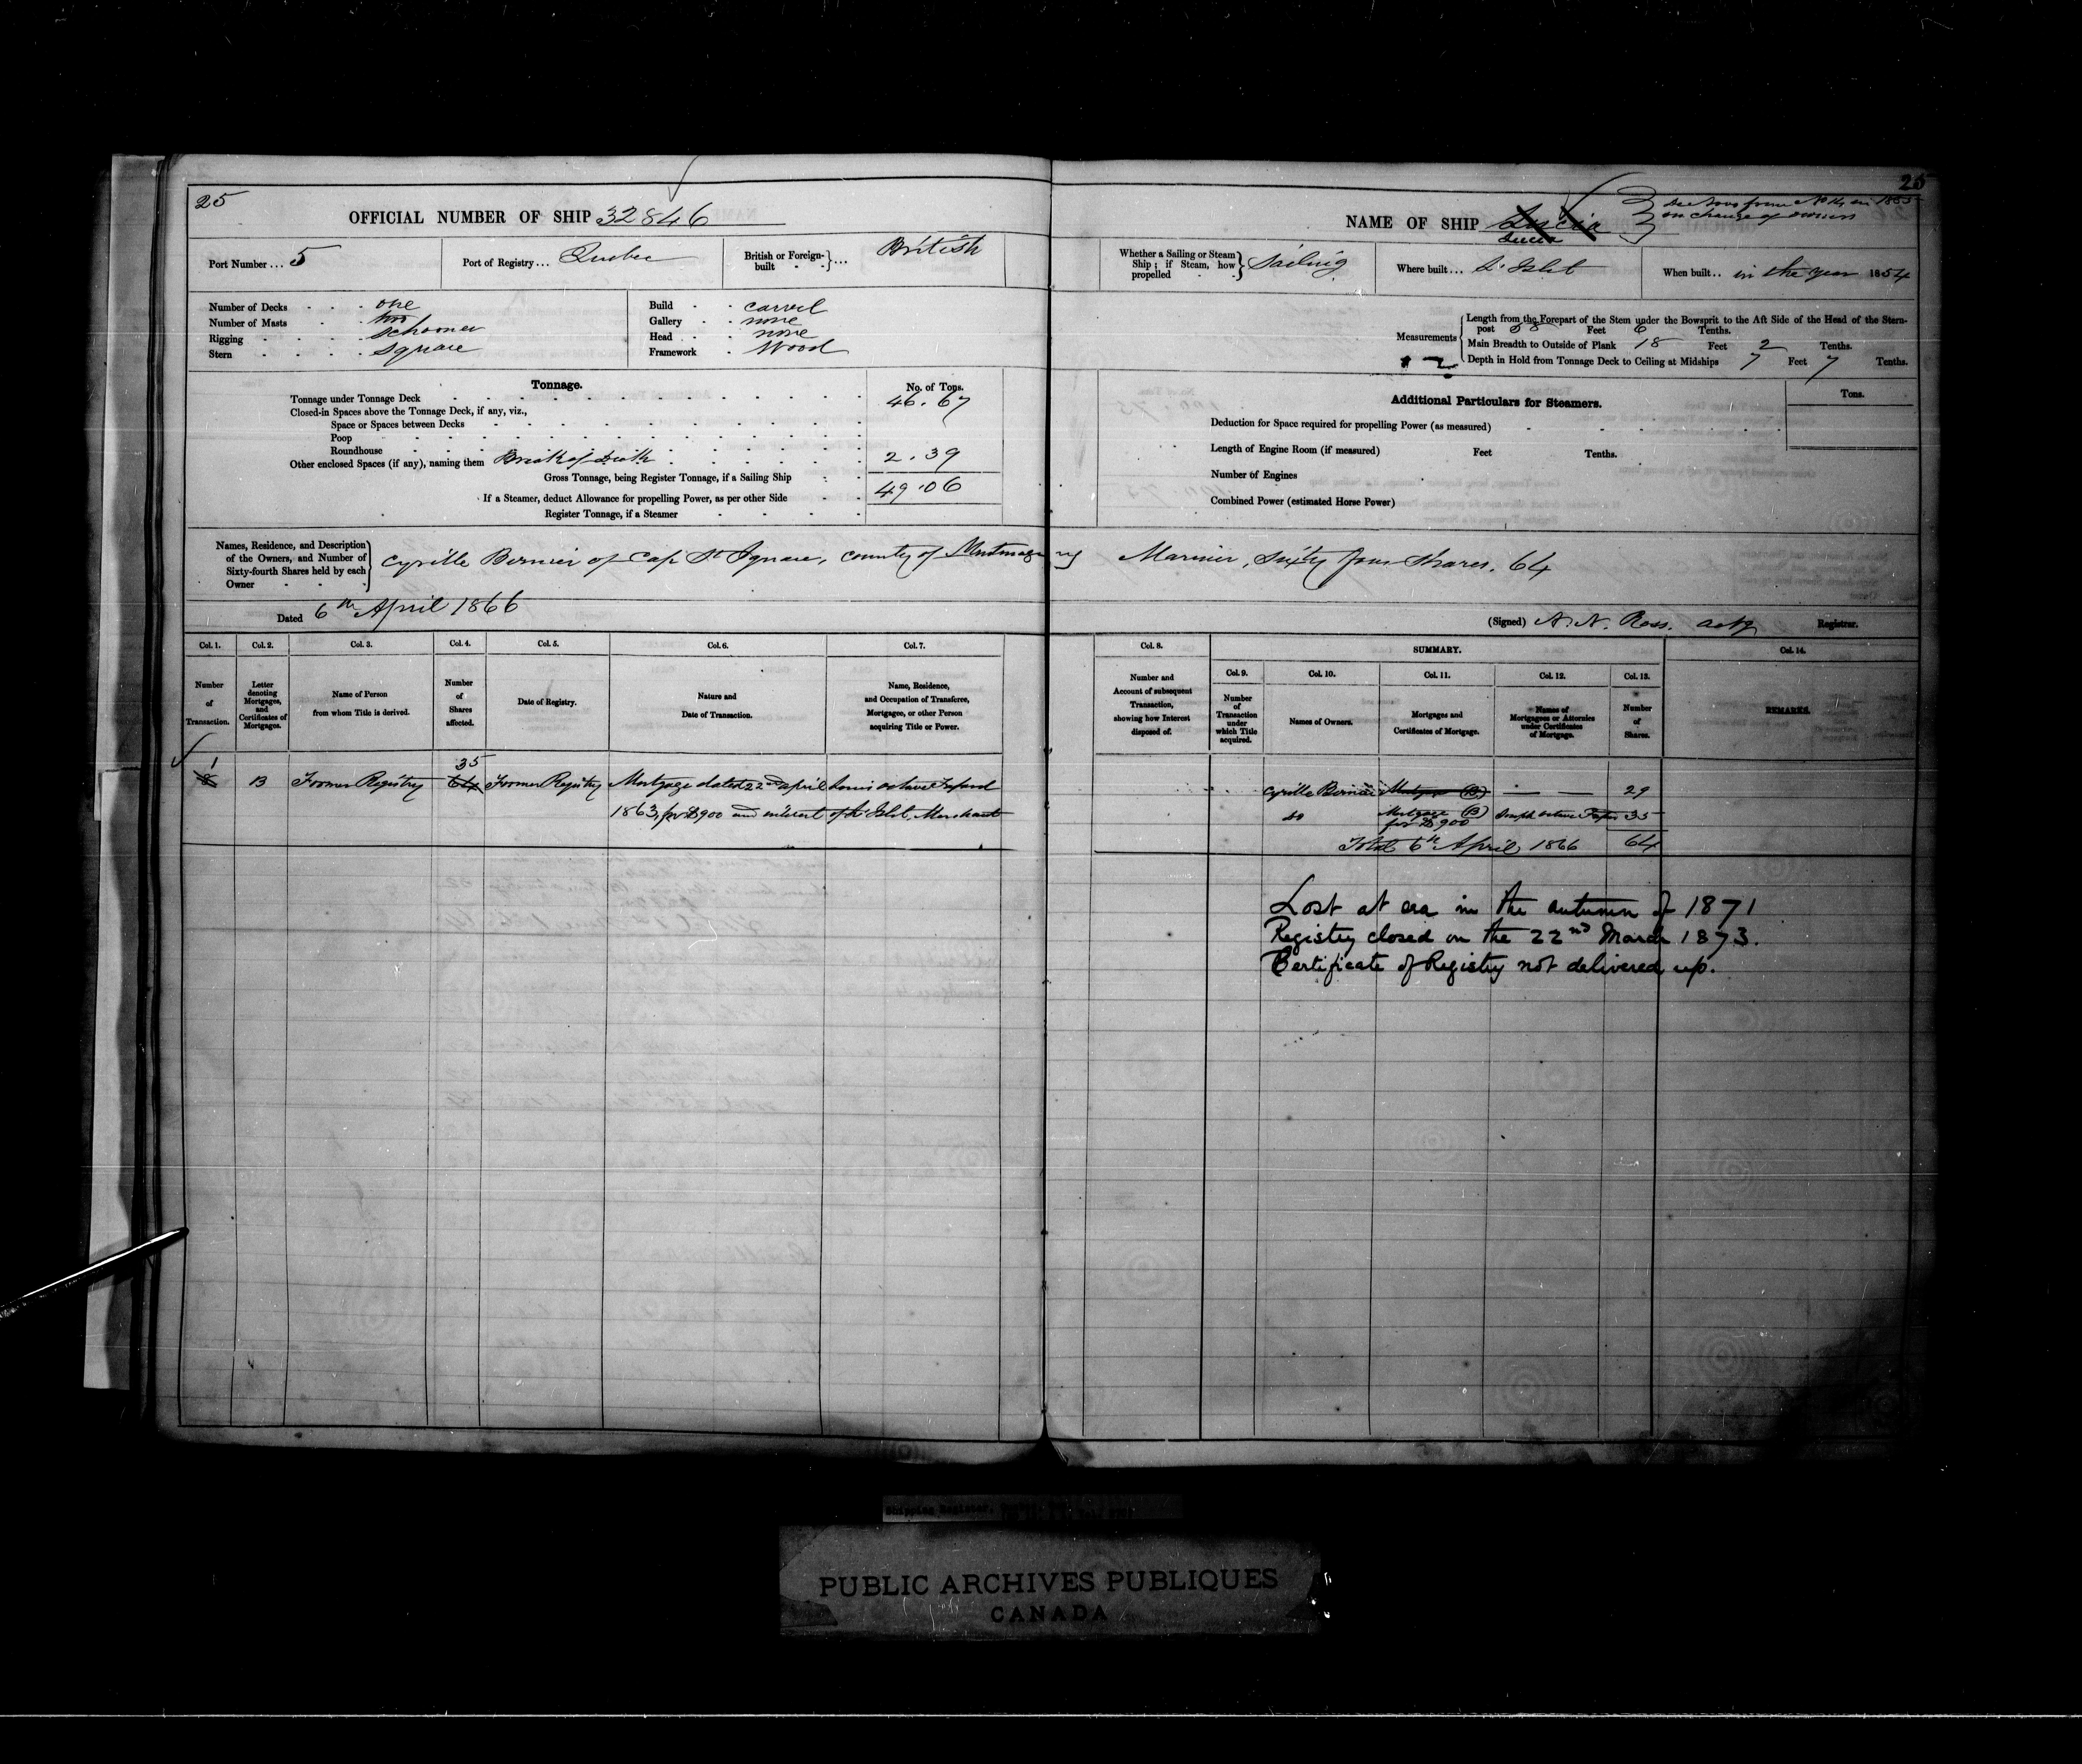 25
25
OFFICIAL NUMBER OF SHIP 32846
NAME OF SHIP Lucia
Lucia
on change of owners
Port Number... 5
Port of Registry... Quebec
British or Foreign-built ... British
Whether a Sailing or Steam Ship; if Steam, how propelled Sailing
Where built... L'Islet
When built.. in the year 1854
Number of Decks one
Number of Masts two
Rigging schooner
Stern square
Build carvel
Gallery none
Head none
Framework Wood
Measurements
Length from the Forepart of the Stem under the Bowsprit to the Aft Side of the Head of the Stern-
post 58 Feet 6 Tenths.
Main Breadth to Outside of Plank 18 Feet 2 Tenths.
Depth in Hold from Tonnage Deck to Ceiling at Midships 7 Feet 7 Tenths.
Tonnage.
No. of Tons.
Tonnage under Tonnage Deck 46.67
Closed-in Spaces above the Tonnage Deck, if any, viz.,
Space or Spaces between Decks
Poop
Roundhouse
Other enclosed Spaces (if any), naming them Break of 2.39
Gross Tonnage, being Register Tonnage, if a Sailing Ship 49.06
If a Steamer, deduct Allowance for propelling Power, as per other Side
Register Tonnage, if a Steamer
Additional Particulars for Steamers.
Tons.
Deduction for Space required for propelling Power (as measured)
Length of Engine Room (if measured) Feet Tenths.
Number of Engines
Combined Power (estimated Horse Power)
Names, Residence, and Description
of the Owners, and Number of
Sixty-fourth Shares held by each
Owner
Cyrille Bernier of Cap St Ignace, county of Montmagny Mariner, Sixty four Shares. 64
Dated 6th April 1866
(Signed) A. N. Ross. actg Registrar.
Col. 1.
Col. 2.
Col. 3.
Col. 4.
Col. 5.
Col. 6.
Col. 7.
Col. 8.
SUMMARY.
Col. 14.
Col. 9.
Col. 10.
Col. 11.
Col. 12.
Col. 13.
Number of Transaction.
Letter denoting Mortgages, and Certificates of Mortgages.
Name of Person from whom Title is derived.
Number of Shares affected.
Date of Registry.
Nature and Date of Transaction.
Name, Residence, and Occupation of Transferee, Mortgagee, or other Person acquiring Title or Power.
Number and Account of subsequent Transaction, showing how Interest disposed of.
Number of Transaction under which Title acquired.
Names of Owners.
Mortgages and Certificates of Mortgage.
Names of Mortgagees or Attornies under Certificates of Mortgage.
Number of Shares.
REMARKS.
1
35
B Former Registry 64 Former Registry Mortgage dated 22nd april
1863, for $900 and interest of L'Islet, Merchant
Cyrille Bernier Mortgage (B) — — 29
do Mortgage (B) 35
for $900
Total 6th April 1866 64
Lost at sea in the autumn of 1871
Registry closed on the 22nd March 1873.
Certificate of Registry not delivered up.
PUBLIC ARCHIVES PUBLIQUES
CANADA